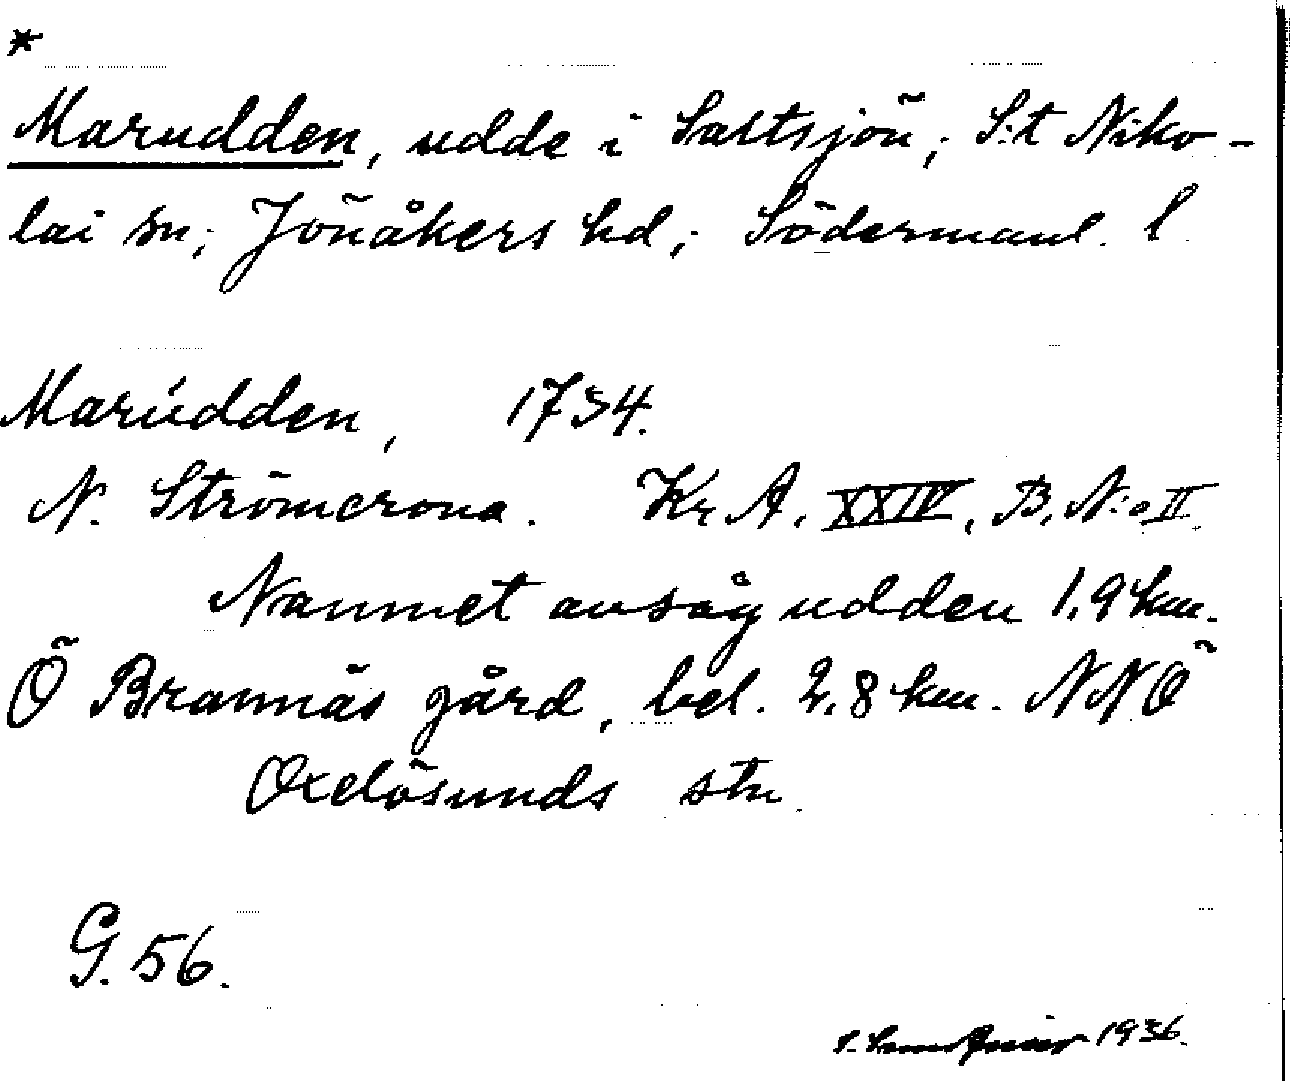 *
Marudden, udde i Saltsjön; S:t Niko-
lai sn; Jönåkers hd; Södermanl. l.
Marúdden, 1734.
N. Strömcrona. Kr. A. XXIV, B, N:o II.
Namnet avsåg udden 1,9 km.
Ö Brannäs gård, bel. 2,8 km. NNÖ
Oxelösunds stn.
G. 56.
1936.